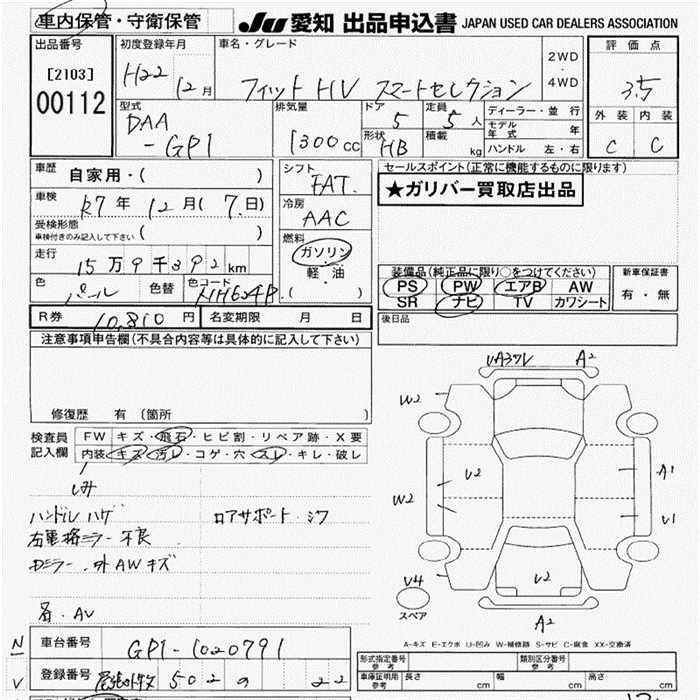 車内保管・守衛保管 JU 愛知 出品申込書 JAPAN USED CAR DEALERS ASSOCIATION
出品番号
[2103]
00112
初度登録年月
H22 12月
車名・グレード
フィット HV スマートセレクション
2WD
・
4WD
評価点
3.5
外装 内装
C C
型式
DAA
-GP1
排気量
1300cc
ドア
5
定員
5人
形状
HB
積載
kg
ディーラー・並行
モデル年式 年
ハンドル 左・右
車歴
自家用・( )
車検
R7年 12月(7.日)
受検形態
車検付きのみ記入して下さい ( )
走行
15万9千392km
色 パール 色替 色コード NH624P
シフト
FAT.
冷房
AAC
燃料
ガソリン
軽・油
( )
セールスポイント(正常に機能するものに限ります)
★ガリバー買取店出品
装備品(純正品に限り○をつけてください)
PS PW エアB AW
SR ナビ TV カワシート
新車保証書
有・無
R券 10,810円 名変期限 月 日
後日品
注意事項申告欄(不具合内容等は具体的に記入して下さい)
修復歴 有(箇所 )
検査員
記入欄
FW キズ・飛石・ヒビ割・リペア跡・X要
内装 キズ・汚レ・コゲ・穴・スレ・キレ・破レ
シミ
ハンドル ハゲ ロアサポート・シワ
右電格ミラー 不良
Dミラー・外AWキズ
名・AV
A2
W2
U2
A1
W2
U1
U2
V4
スペア
A2
A-キズ E-エクボ U-凹み W-補修跡 S-サビ C-腐食 XX-交換済
N
V
車台番号 GP1-1020791
登録番号 502 22
形式指定番号
参考
類別区分番号
参考
車庫証明用
参考
長さ cm 幅 cm 高さ cm